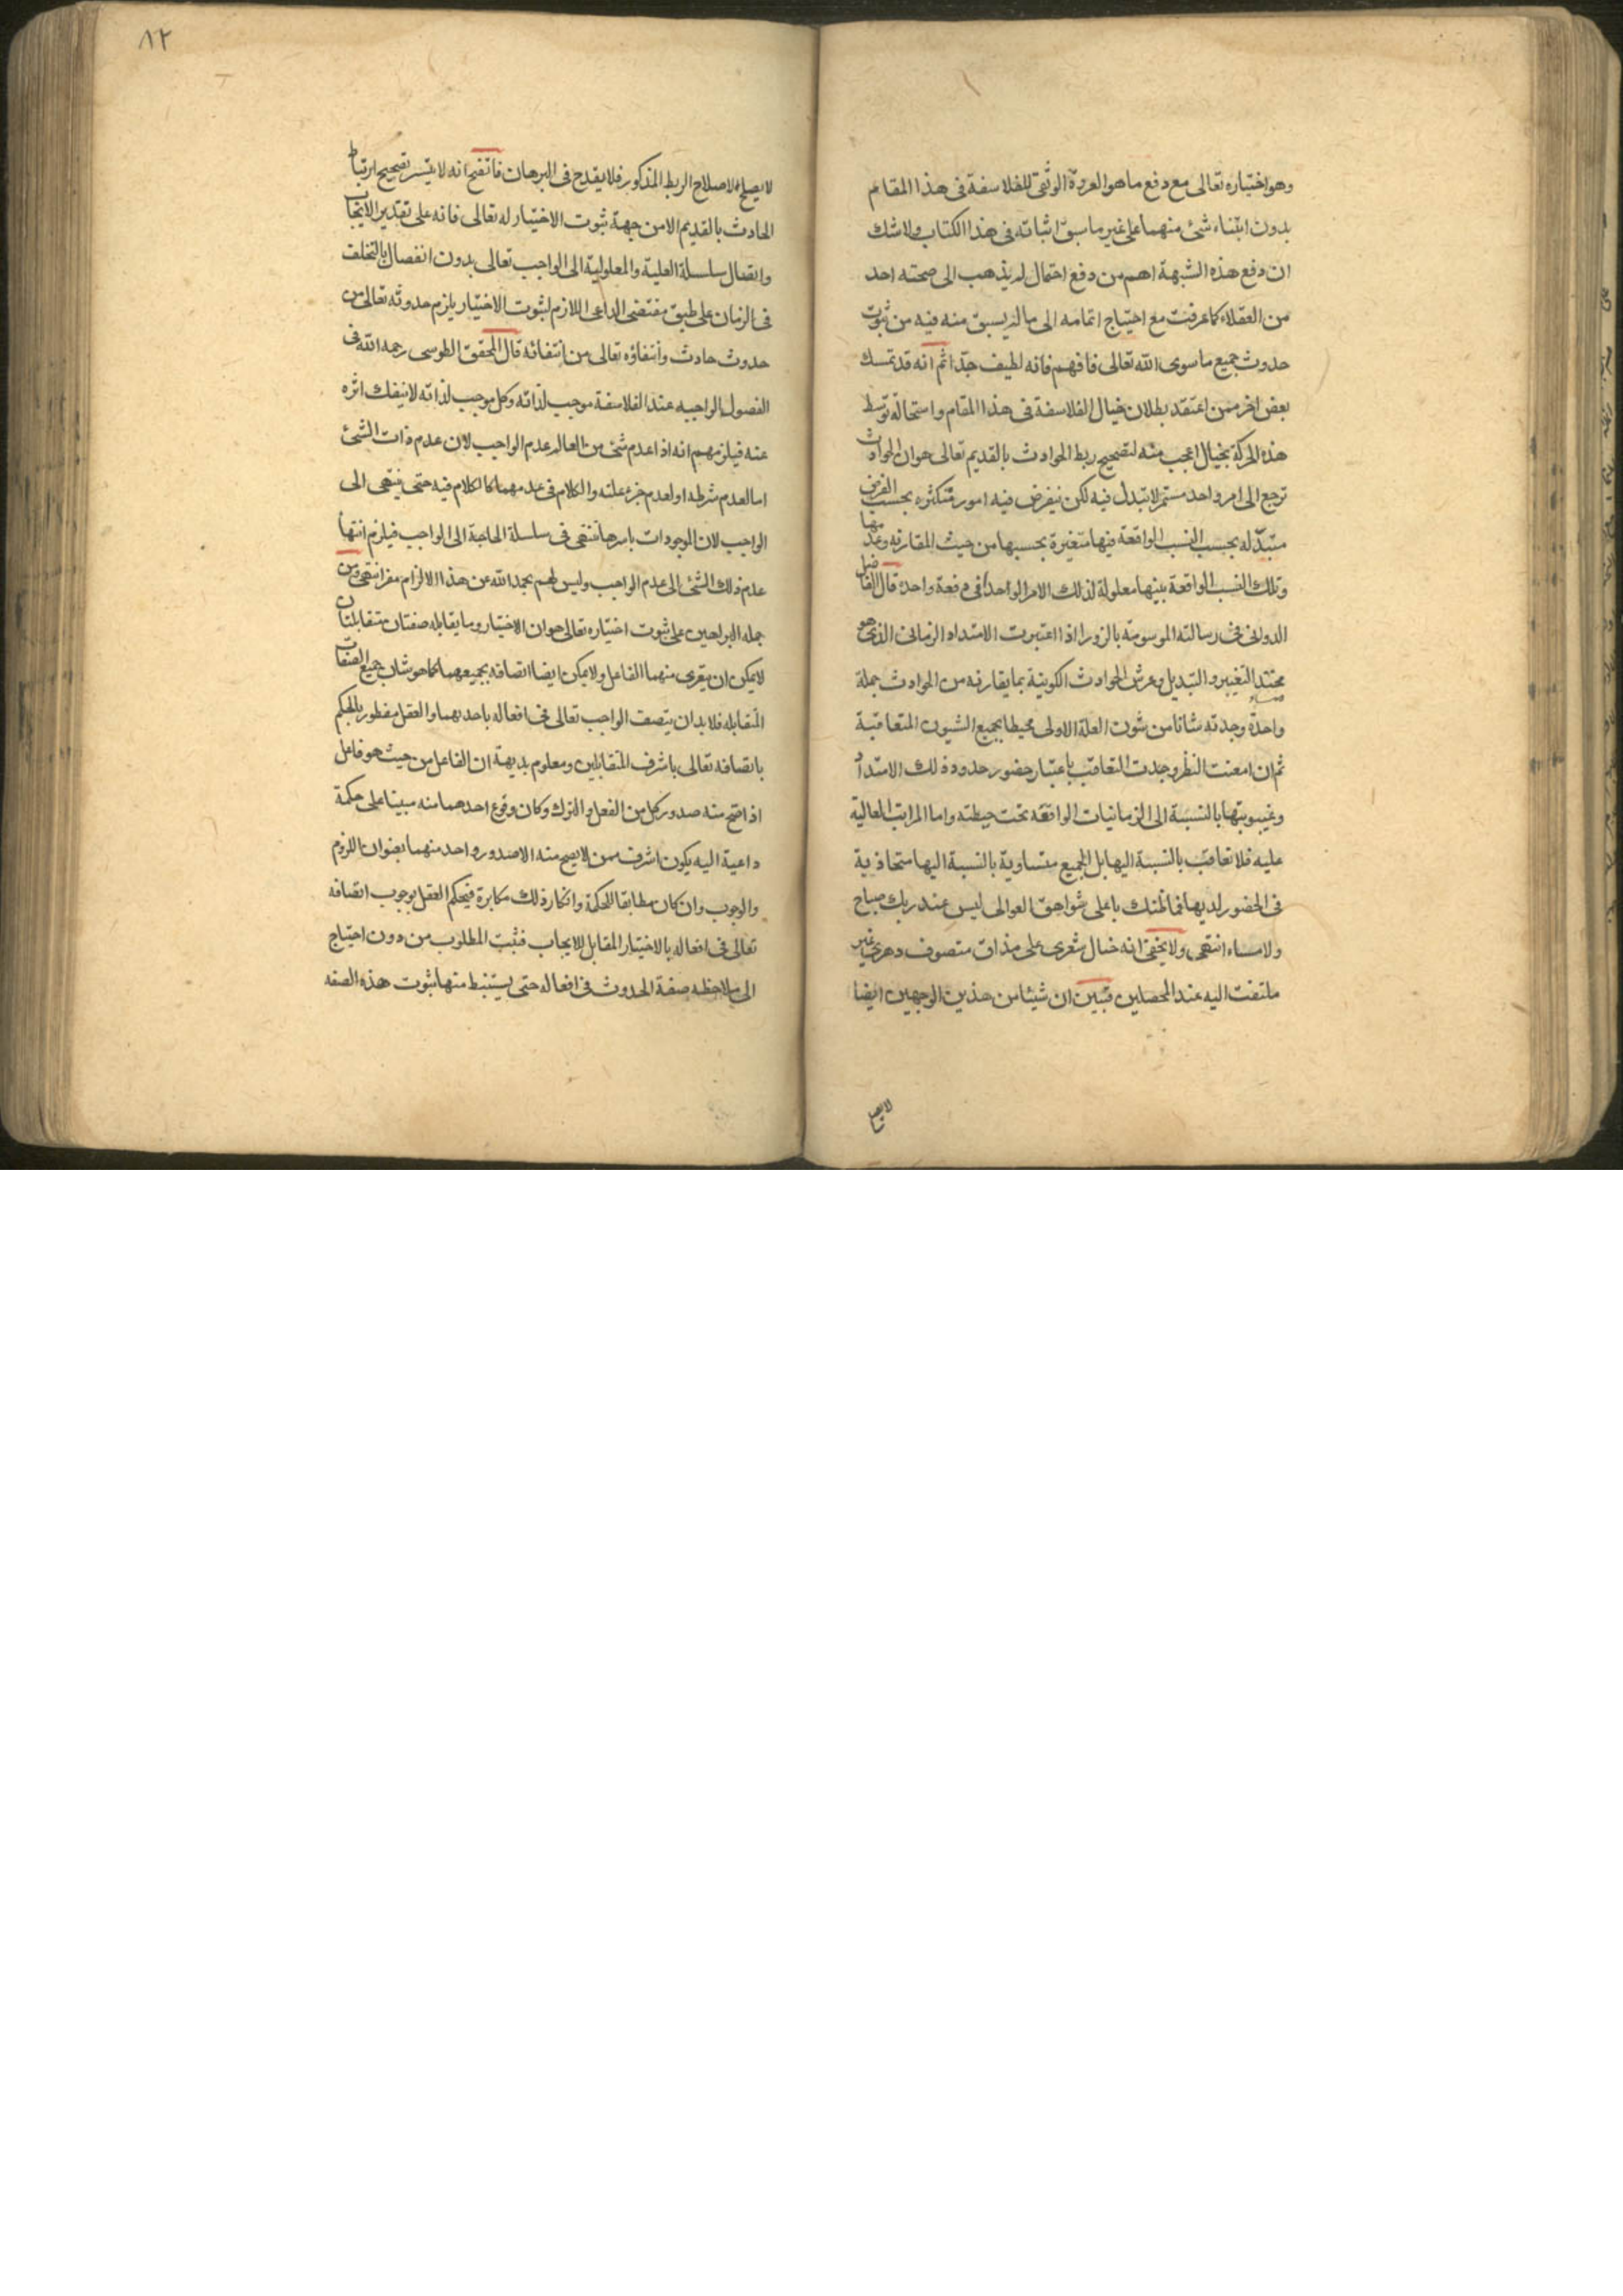 وهو اختياره تعالى مع دفع ما هو العروة الوثقى للفلاسفة فى هذا المقام
بدون ابتناء شئ منهما على غير ما سبق اثباته فى هذا الكتاب ولا شك
ان دفع هذه الشبهة اهم من دفع احتمال لم يذهب الى صحته احد
من العقلاء كما عرفت مع احتياج اتمامه الى ما لم يسبق منه فيه من ثبوت
حدوث جميع ما سوى الله تعالى فافهم فانه لطيف جدّا ثم انه قد تمسك
بعض اخر ممن اعتقد بطلان خيال الفلاسفة فى هذا المقام واستحالة توسط
هذه الحركة بخيال اعجب منه لتصحيح ربط الحوادث بالقديم تعالى هو ان الحوادث
ترجع الى امر واحد مستمر لا تبدل فيه لكن ينفرض فيه امور متكثره بحسب الفرض
متبدّله بحسب النسب الواقعة فيها متغيرة بحسبها من حيث المقارنه وعدمها
وتلك النسب الواقعة بينها معلولة لذلك الامر الواحد فى دفعة واحدة قال الفاضل
الدوانى فى رسالته الموسومة بالزورا اذا اعتبرت الامتداد الزمانى الذى هو
محتد التغير والتبديل وعرش الحوادث الكونية بما يقارنه من الحوادث جملة
واحدة وجدته شانا من شئون العلة الاولى محيطا بجميع الشيون المتعاقبة
ثم ان امعنت النظر وجدت التعاقب باعتبار حضور حدود ذلك الامتداد
وغيبوبتها بالنسبة الى الزمانيات الواقعة تحت حيطته واما المراتب العالية
عليه فلا تعاقب بالنسبة اليها بل الجميع متساوية بالنسبة اليها متحاذية
فى الحضور لديها فما ظنك باعلى شواهق العوالى ليس عند ربك صباح
ولا مساء انتهى ولا يخفى انه خيال شعرى على مذاق متصوف دهرى غير
ملتفت اليه عند المحصلين فتبين ان شيئا من هذين الوجهين ايضا
لا يصلح
٨٢
لا يصلح لاصلاح الربط المذكور فلا يقدح فى البرهان فاتضح انه لا يتيسر تصحيح ارتباط
الحادث بالقديم الا من جهة ثبوت الاختيار له تعالى فانه على تقدير الايجاب
واتصال سلسلة العلية والمعلولية الى الواجب تعالى بدون انفصال بالتخلف
فى الزمان على طبق مقتضى الداعى اللازم لثبوت الاختيار يلزم حدوثه تعالى من
حدوث حادث وانتفاؤه تعالى من انتفائه قال المحقق الطوسى رحمه الله فى
الفصول الواجبه عند الفلاسفة موجب لذاته وكل موجب لذاته لا ينفك اثره
عنه فيلزمهم انه اذا عدم شئ من العالم عدم الواجب لان عدم ذات الشئ
اما لعدم شرطه او لعدم جزء علته والكلام فى عدمهما كالكلام فيه حتى ينتهى الى
الواجب لان الموجودات باسرها تنتهى فى سلسلة الحاجة الى الواجب فيلزم انتهاء
عدم ذلك الشئ الى عدم الواجب وليس لهم بحمد الله عن هذا الالزام مفر انتهى ومن
جمله البراهين على ثبوت اختياره تعالى هو ان الاختيار وما يقابله صفتان متقابلتان
لا يمكن ان يتعرى منهما الفاعل ولا يمكن ايضا اتصافه بجميعهما كما هو شان جميع الصفات
المتقابله فلا بد ان يتصف الواجب تعالى فى افعاله باحدهما والعقل مفطور بالحكم
باتصافه تعالى باشرف المتقابلين ومعلوم بديهة ان الفاعل من حيث هو فاعل
اذا صح منه صدور كل من الفعل والترك وكان وقوع احدهما منه مبينا على حكمة
داعية اليه يكون اشرف ممن لا يصح منه الا صدور واحد منهما بعنوان اللزوم
والوجوب وان كان مطابقا للحكمة وانكار ذلك مكابرة فيحكم العقل بوجوب اتصافه
تعالى فى افعاله بالاختيار المقابل للايجاب فثبت المطلوب من دون احتياج
الى ملاحظه صفة الحدوث فى افعاله حتى يستنبط منها ثبوت هذه الصفه